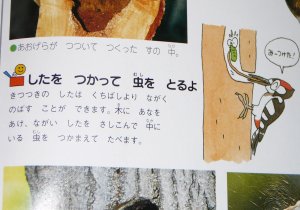 ●あおげらが つついて つくった すの 中。
したを つかって 虫を とるよ
きつつきの したは くちばしより ながく
のばす ことが できます。木に あなを
あけ、ながい したを さしこんで 中に
いる 虫を つかまえて たべます。
あーつかまえた!